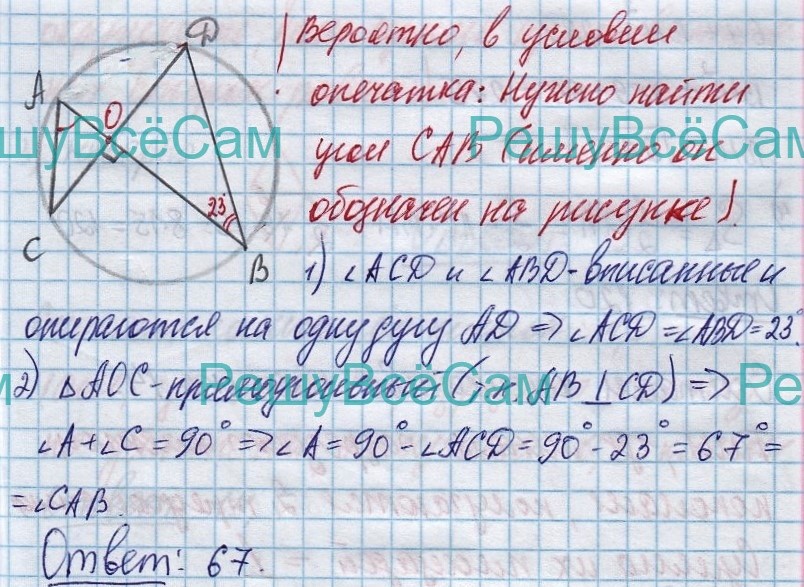 D
A
O
23°
C
B
(Вероятно, в условии
опечатка: Нужно найти
угол CAB (именно он
обозначен на рисунке).
РешуВсёСам РешуВсёСам
1) ∠ACD и ∠ABD - вписанные и
опираются на одну дугу AD => ∠ACD = ∠ABD = 23°.
2) △AOC - прямоугольный (т.к. AB ⊥ CD) =>
РешуВсёСам
∠A + ∠C = 90° => ∠A = 90° - ∠ACD = 90° - 23° = 67° =
= ∠CAB.
Ответ: 67.